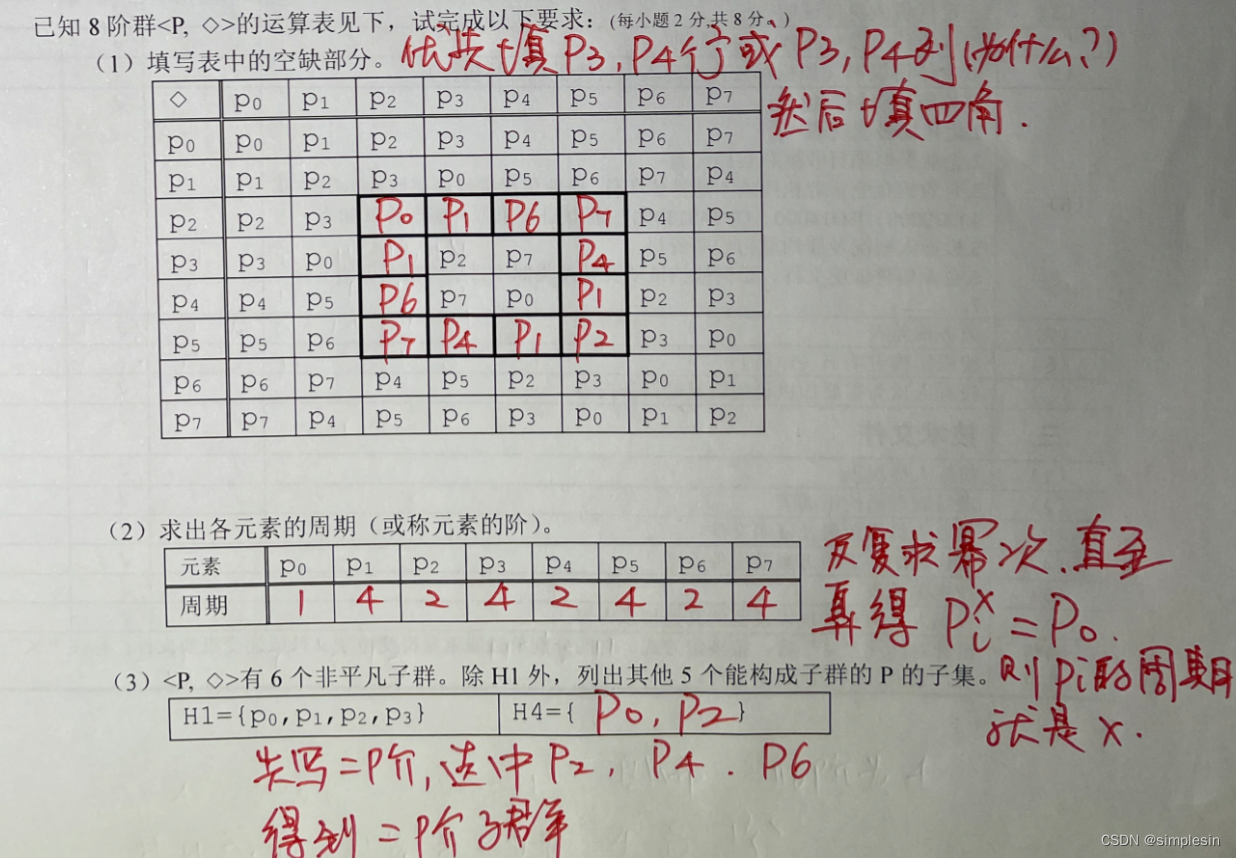 已知 8 阶群<P, ◇>的运算表见下，试完成以下要求：(每小题 2 分 共 8 分。)
（1）填写表中的空缺部分。优先填P3, P4行或P3, P4列(为什么?)
然后填四角.
◇ p0 p1 p2 p3 p4 p5 p6 p7
p0 p0 p1 p2 p3 p4 p5 p6 p7
p1 p1 p2 p3 p0 p5 p6 p7 p4
p2 p2 p3 P0 P1 P6 P7 p4 p5
p3 p3 p0 P1 p2 p7 P4 p5 p6
p4 p4 p5 P6 p7 p0 P1 p2 p3
p5 p5 p6 P7 P4 P1 P2 p3 p0
p6 p6 p7 p4 p5 p2 p3 p0 p1
p7 p7 p4 p5 p6 p3 p0 p1 p2
（2）求出各元素的周期（或称元素的阶）。
元素 p0 p1 p2 p3 p4 p5 p6 p7
周期 1 4 2 4 2 4 2 4
反复求幂次、直至
算得 Pi^x = P0.
则 Pi的周期
就是 x.
（3）<P, ◇>有 6 个非平凡子群。除 H1 外，列出其他 5 个能构成子群的 P 的子集。
H1={p0,p1,p2,p3} H4={ P0, P2}
先写二P介, 选中 P2, P4. P6
得到二P介子群
CSDN @simplesin